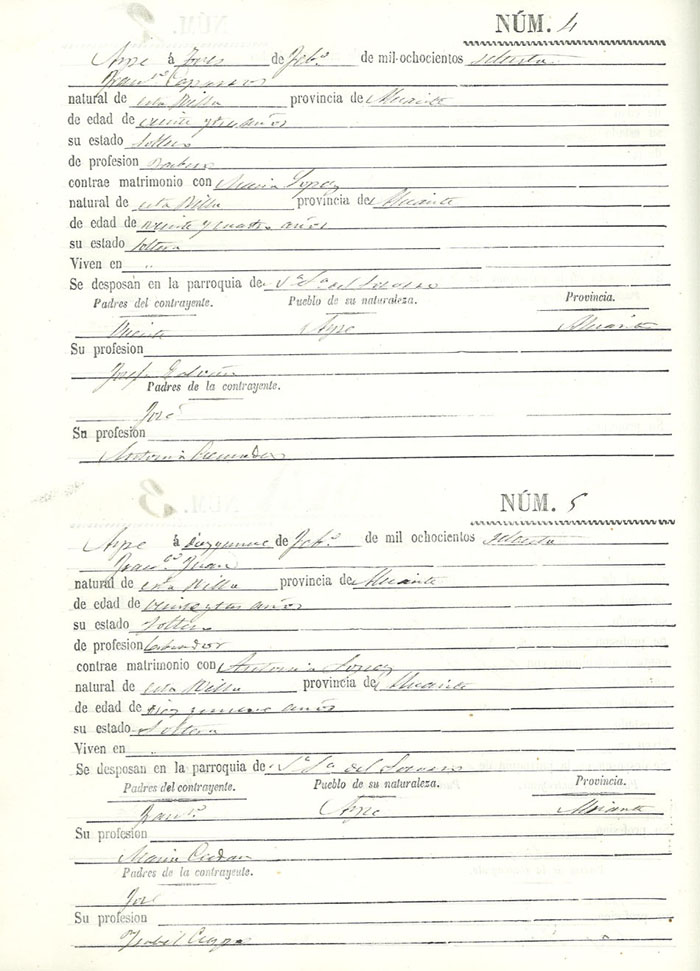 NÚM. 4
Aspe á tres de Feb.º de mil ochocientos setenta
Fran.co
natural de esta Villa provincia de Alicante
de edad de veinte y tres años
su estado soltero
de profesion Barbero
contrae matrimonio con Maria Lopez
natural de esta Villa provincia de Alicante
de edad de veinte y cuatro años
su estado soltera
Viven en "
Se desposán en la parroquia de N.ª S.ª del Socorro
Padres del contrayente. Pueblo de su naturaleza. Provincia.
Vicente Aspe Alicante
Su profesion
Josefa
Padres de la contrayente.
José
Su profesion
Antonia Cremades
NÚM. 5
Aspe á diez y nueve de Feb.º de mil ochocientos setenta
Fran.co Juan
natural de esta Villa provincia de Alicante
de edad de veinte y tres años
su estado soltero
de profesion labrador
contrae matrimonio con Antonia Lopez
natural de esta Villa provincia de Alicante
de edad de diez y nueve años
su estado soltera
Viven en "
Se desposan en la parroquia de N.ª S.ª del Socorro
Padres del contrayente. Pueblo de su naturaleza. Provincia.
Fran.co Aspe Alicante
Su profesion
Maria
Padres de la contrayente.
José
Su profesion
Ysabel